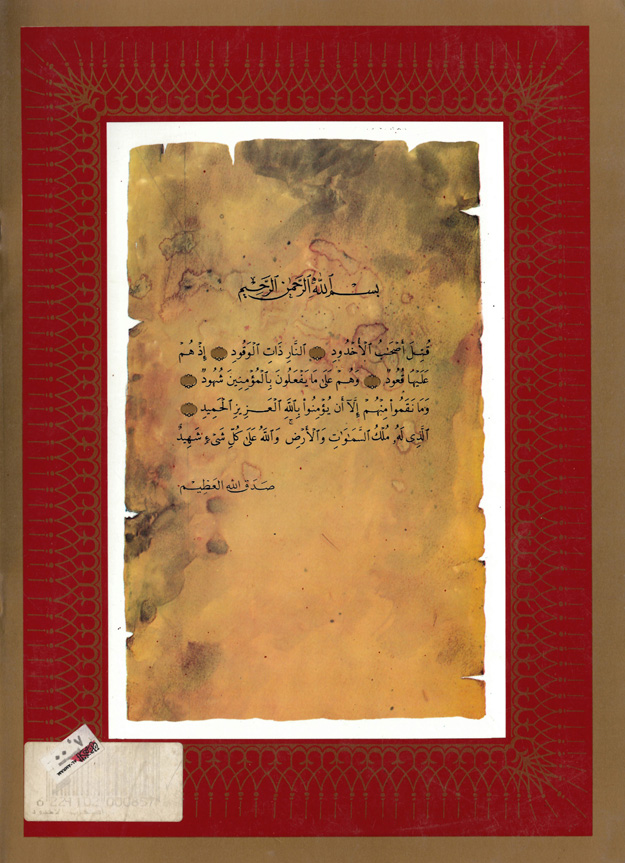 بِسْمِ ٱللَّهِ ٱلرَّحْمَٰنِ ٱلرَّحِيمِ
قُتِلَ أَصْحَٰبُ ٱلْأُخْدُودِ ۝ ٱلنَّارِ ذَاتِ ٱلْوَقُودِ ۝ إِذْ هُمْ
عَلَيْهَا قُعُودٌ ۝ وَهُمْ عَلَىٰ مَا يَفْعَلُونَ بِٱلْمُؤْمِنِينَ شُهُودٌ ۝
وَمَا نَقَمُوا۟ مِنْهُمْ إِلَّآ أَن يُؤْمِنُوا۟ بِٱللَّهِ ٱلْعَزِيزِ ٱلْحَمِيدِ ۝
ٱلَّذِى لَهُۥ مُلْكُ ٱلسَّمَٰوَٰتِ وَٱلْأَرْضِ ۚ وَٱللَّهُ عَلَىٰ كُلِّ شَىْءٍ شَهِيدٌ
صَدَقَ اللهُ العَظِيم.